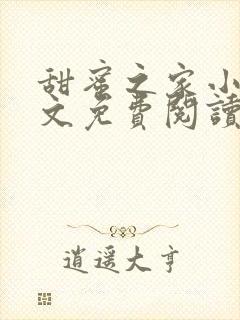 甜蜜之家小
文免費閱讀
逍遥大亨